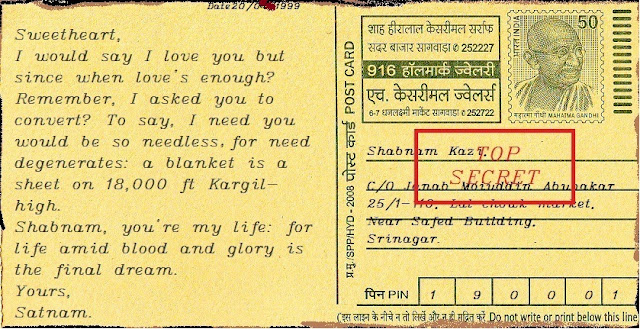 Sweetheart,
I would say I love you but
since when love's enough?
Remember, I asked you to
convert? To say, I need you
would be so needless, for need
degenerates: a blanket is a
sheet on 18,000 ft Kargil-
high.
Shabnam, you're my life: for
life amid blood and glory is
the final dream.
Yours,
Satnam.
प्र.मु./SPP/HYD - 2008 पोस्ट कार्ड POST CARD
शाह हीरालाल केसरीमल सर्राफ
सदर बाजार सागवाड़ा ✆ 252227
916 हॉलमार्क ज्वेलरी
एच. केसरीमल ज्वेलर्स
6-7 धनलक्ष्मी मार्केट सागवाड़ा ✆ 252722
50
भारत INDIA
महात्मा गाँधी MAHATMA GANDHI
TOP
SECRET
Shabnam Kazi.
C/O Janab Moiuddin Abubakar
25/1- Lal Chouk market,
Near Safed Building.
Srinagar.
पिन PIN 1 9 0 0 0 1
(इस लाइन के नीचे न तो लिखें और न ही मुद्रित करें Do not write or print below this line